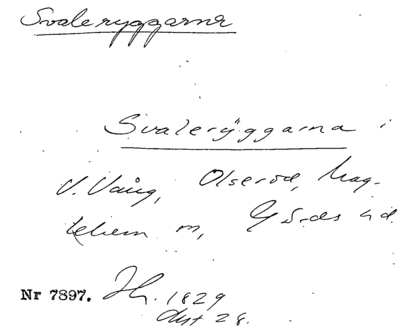 Svaleryggarna
Svaleryggarna i
V. Vång, Olseröd, Mag-
lehem sn, Gärds hd.
Nr 7897. Jh. 1829
Akt 28.